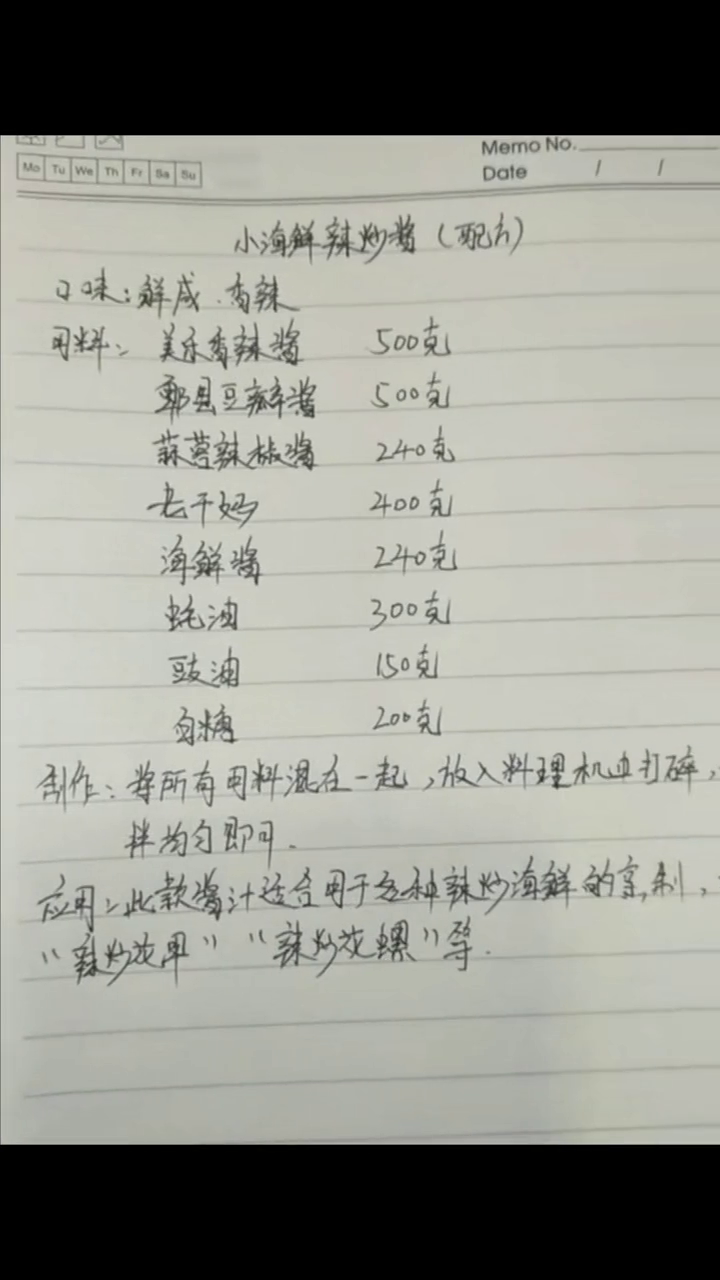 Memo No.
Mo Tu We Th Fr Sa Su
Date / /
小海鲜辣炒酱（配方）
口味：鲜咸、香辣
用料： 美乐香辣酱 500克
郫县豆瓣酱 500克
蒜蓉辣椒酱 240克
老干妈 400克
海鲜酱 240克
蚝油 300克
豉油 150克
白糖 200克
制作：将所有用料混在一起，放入料理机中打碎，
拌均匀即可.
应用：此款酱汁适合用于各种辣炒海鲜的烹制，
“辣炒花甲” “辣炒花螺”等.